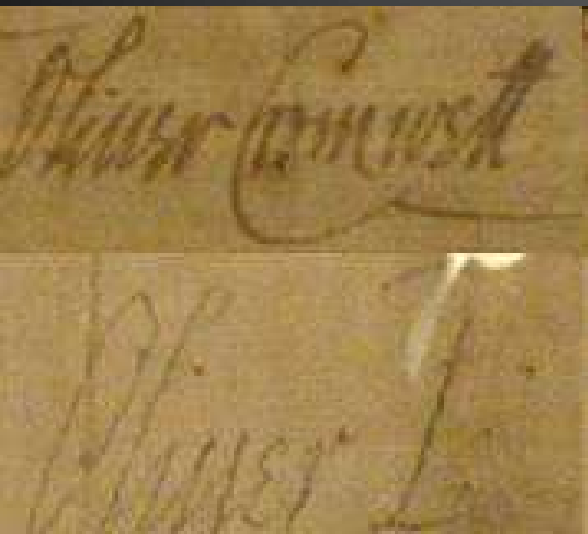 Oliver Cromwell
Oliver